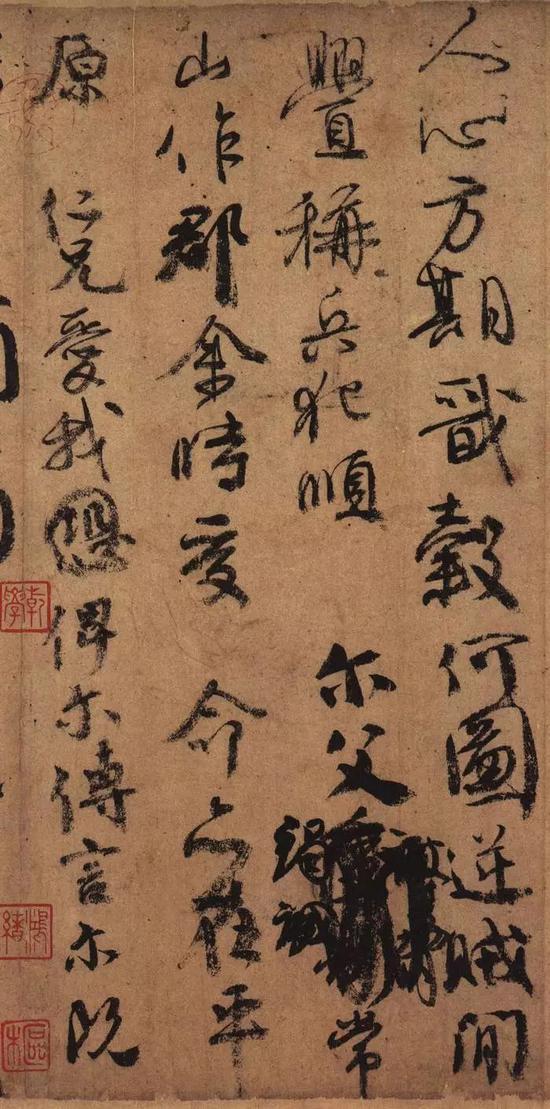 人心方期戩穀何圖逆賊間
釁稱兵犯順爾父竭誠常
山作郡余時受命亦在平
原仁兄愛我俾爾傳言爾既